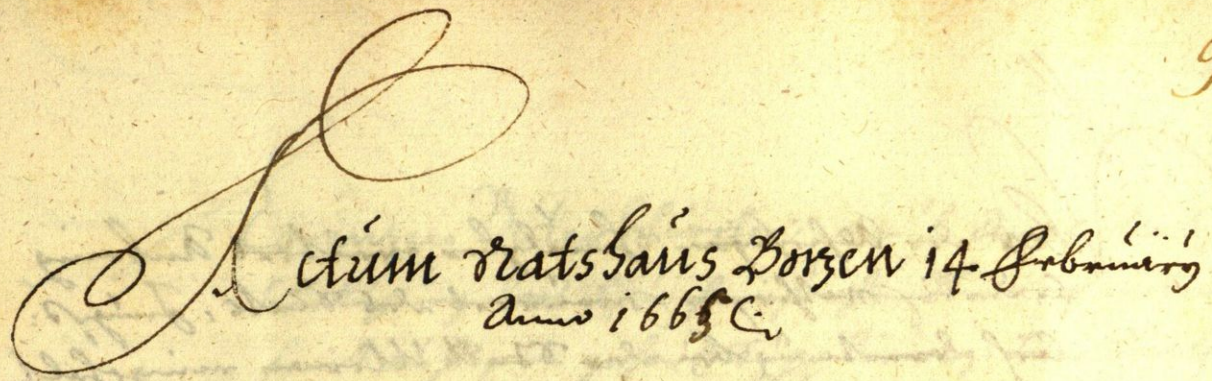 Actum Ratshaus Botzen 14. February
Anno 1665